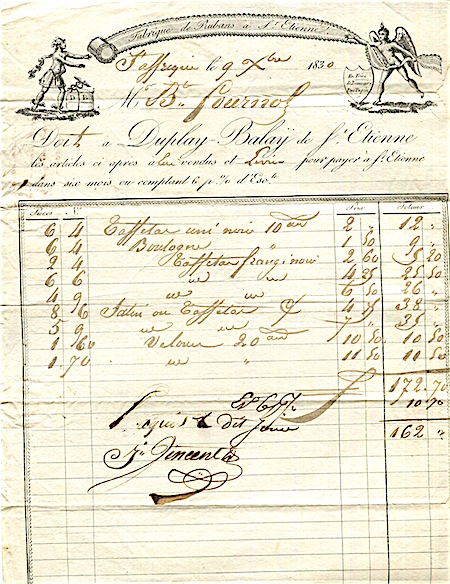 Fabrique de Rubans à St. Etienne.
St affrique le 9 Xbre 1830
Mr. Bt. Fournol
Doit à Duplay-Balaÿ de St. Etienne
les articles ci après à lui vendus et Livrés pour payer à St. Etienne
dans six mois ou comptant 6 p. % d'Esc.te
Pièces N.os Prix Totaux
6 4 Taffetas uni noir 10 aun 2 " 12 "
6 4 Boulogne " 1 50 9 "
2 4 Taffetas frangé noir 2 60 5 20
6 6 " " 4 25 25 50
4 9 " " 6 50 26 "
8 6 Satin ou Taffetas 4 75 38 "
5 9 " " 7 " 35 "
1 60 Velours 20 aun 10 50 10 50
1 70 " " 11 50 11 50
172 70
Es. 6 p% 10 70
162 "
acquis le dit jour